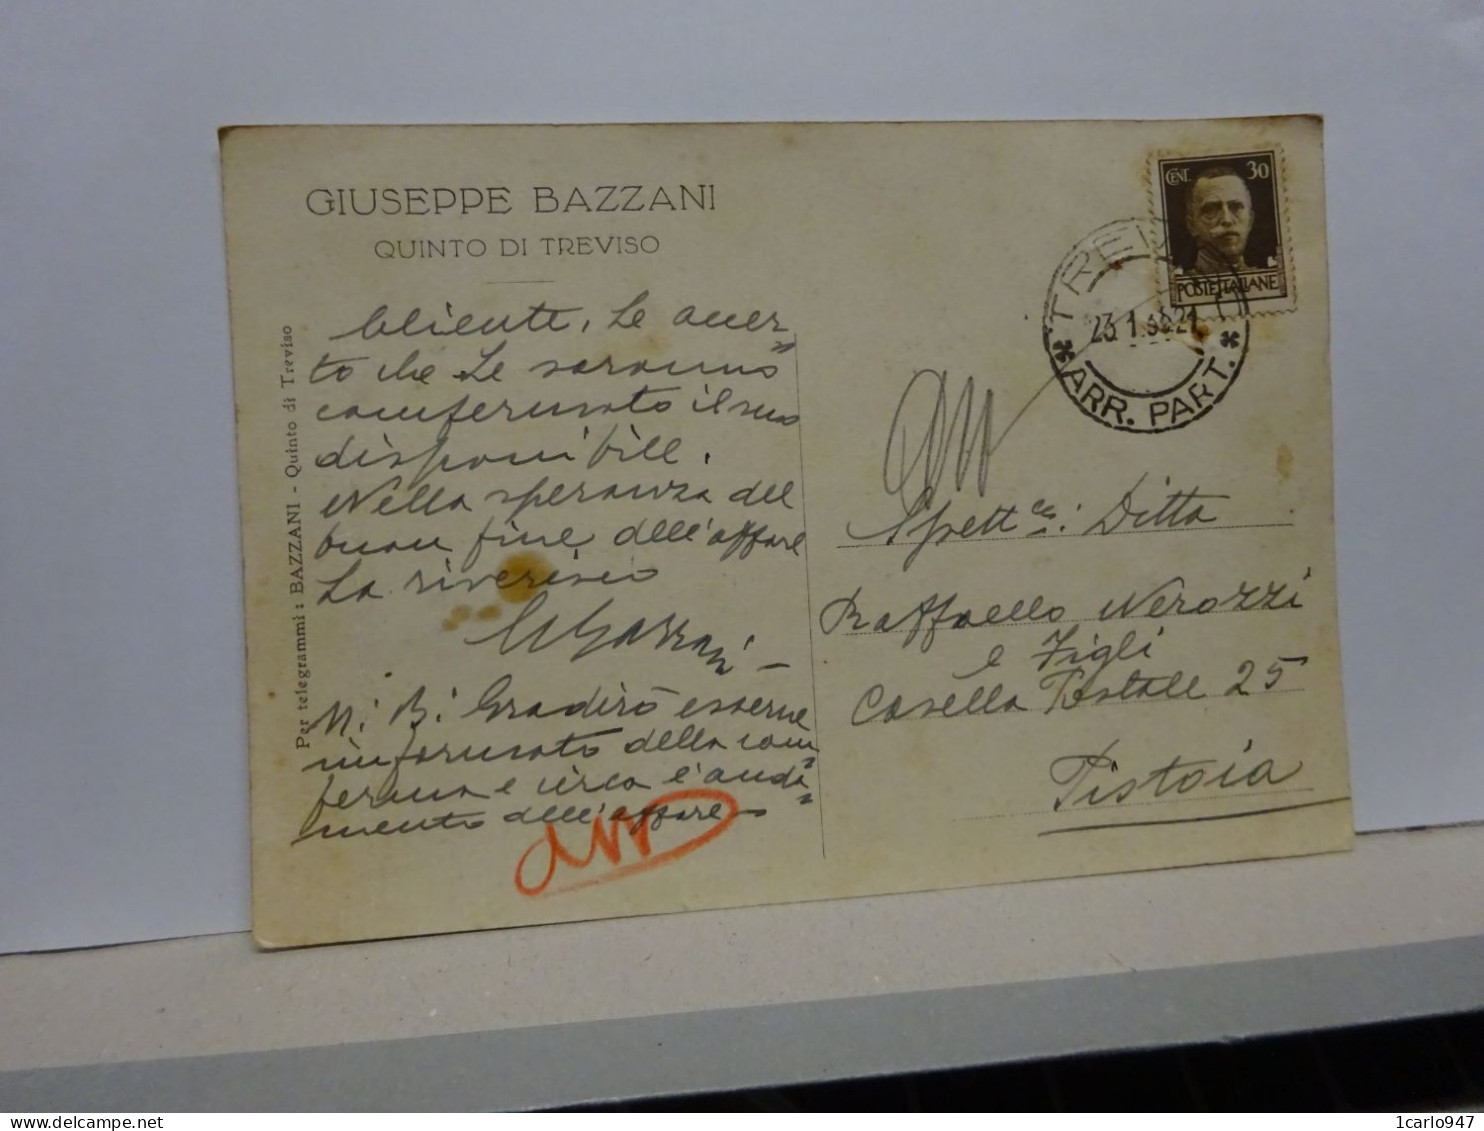 GIUSEPPE BAZZANI
QUINTO DI TREVISO
Per telegrammi: BAZZANI - Quinto di Treviso
cliente, Le accer
to che Le saranno
confermato il suo
disponibile.
Nella speranza del
buon fine dell'affare
La riverisco
N. B. Gradirò esserne
informato della con
ferma e circa l'anda
mento dell'affare
CENT. 30
POSTE ITALIANE
TREVISO
23.1.
21
* ARR. PART. *
Spett. Ditta
Raffaello Nerozzi
e Figli
Casella Postale 25
Pistoia
delcampe.net
1carlo947